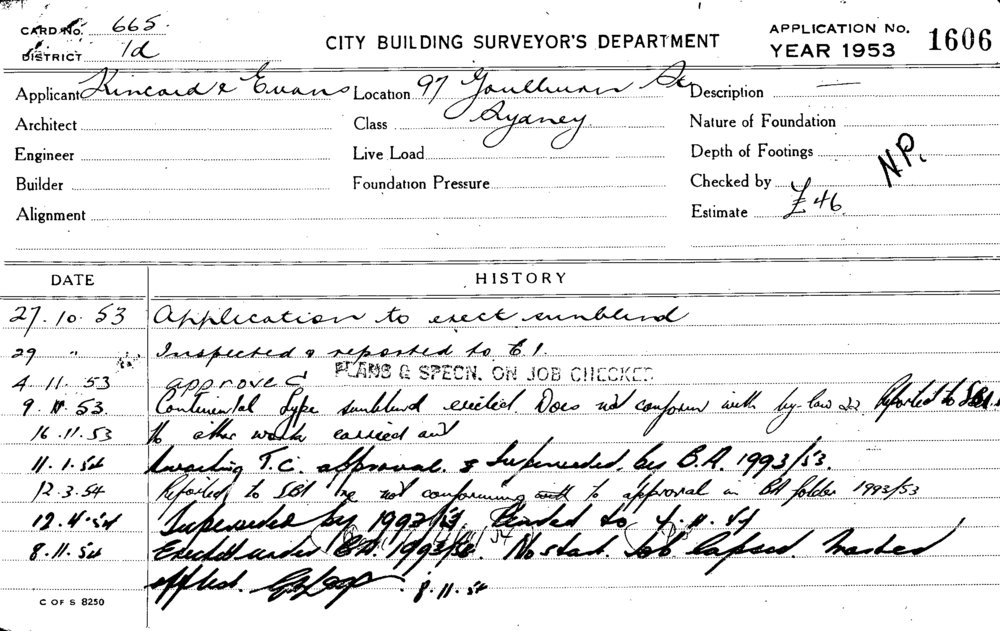 CARD No. 665
DISTRICT 1d
CITY BUILDING SURVEYOR'S DEPARTMENT
APPLICATION No. 1606
YEAR 1953
Applicant Kincard & Evans Location 97 Goulburn St Description —
Architect Class Sydney Nature of Foundation
Engineer Live Load Depth of Footings NP.
Builder Foundation Pressure Checked by
Alignment Estimate £46
DATE HISTORY
27.10.53 Application to erect sunblind
29 " Inspected & reported to E.I.
4.11.53 approved PLANS & SPECN. ON JOB CHECKED
9.11.53 Continental Type sunblind erected Does not conform with by-law Reported to SBI.
16.11.53 No other work carried out
11.1.54 Awaiting T.C. approval. & Superseded by B.A. 1993/53.
12.3.54 Reported to SBI re not conforming with to approval in BA folder 1993/53
12.4.54 Superseded by 1993/53. to
8.11.54 Erected under B.A. 1993/53. No start. Job lapsed. Marked
off list. 8.11.54
C OF S 8250